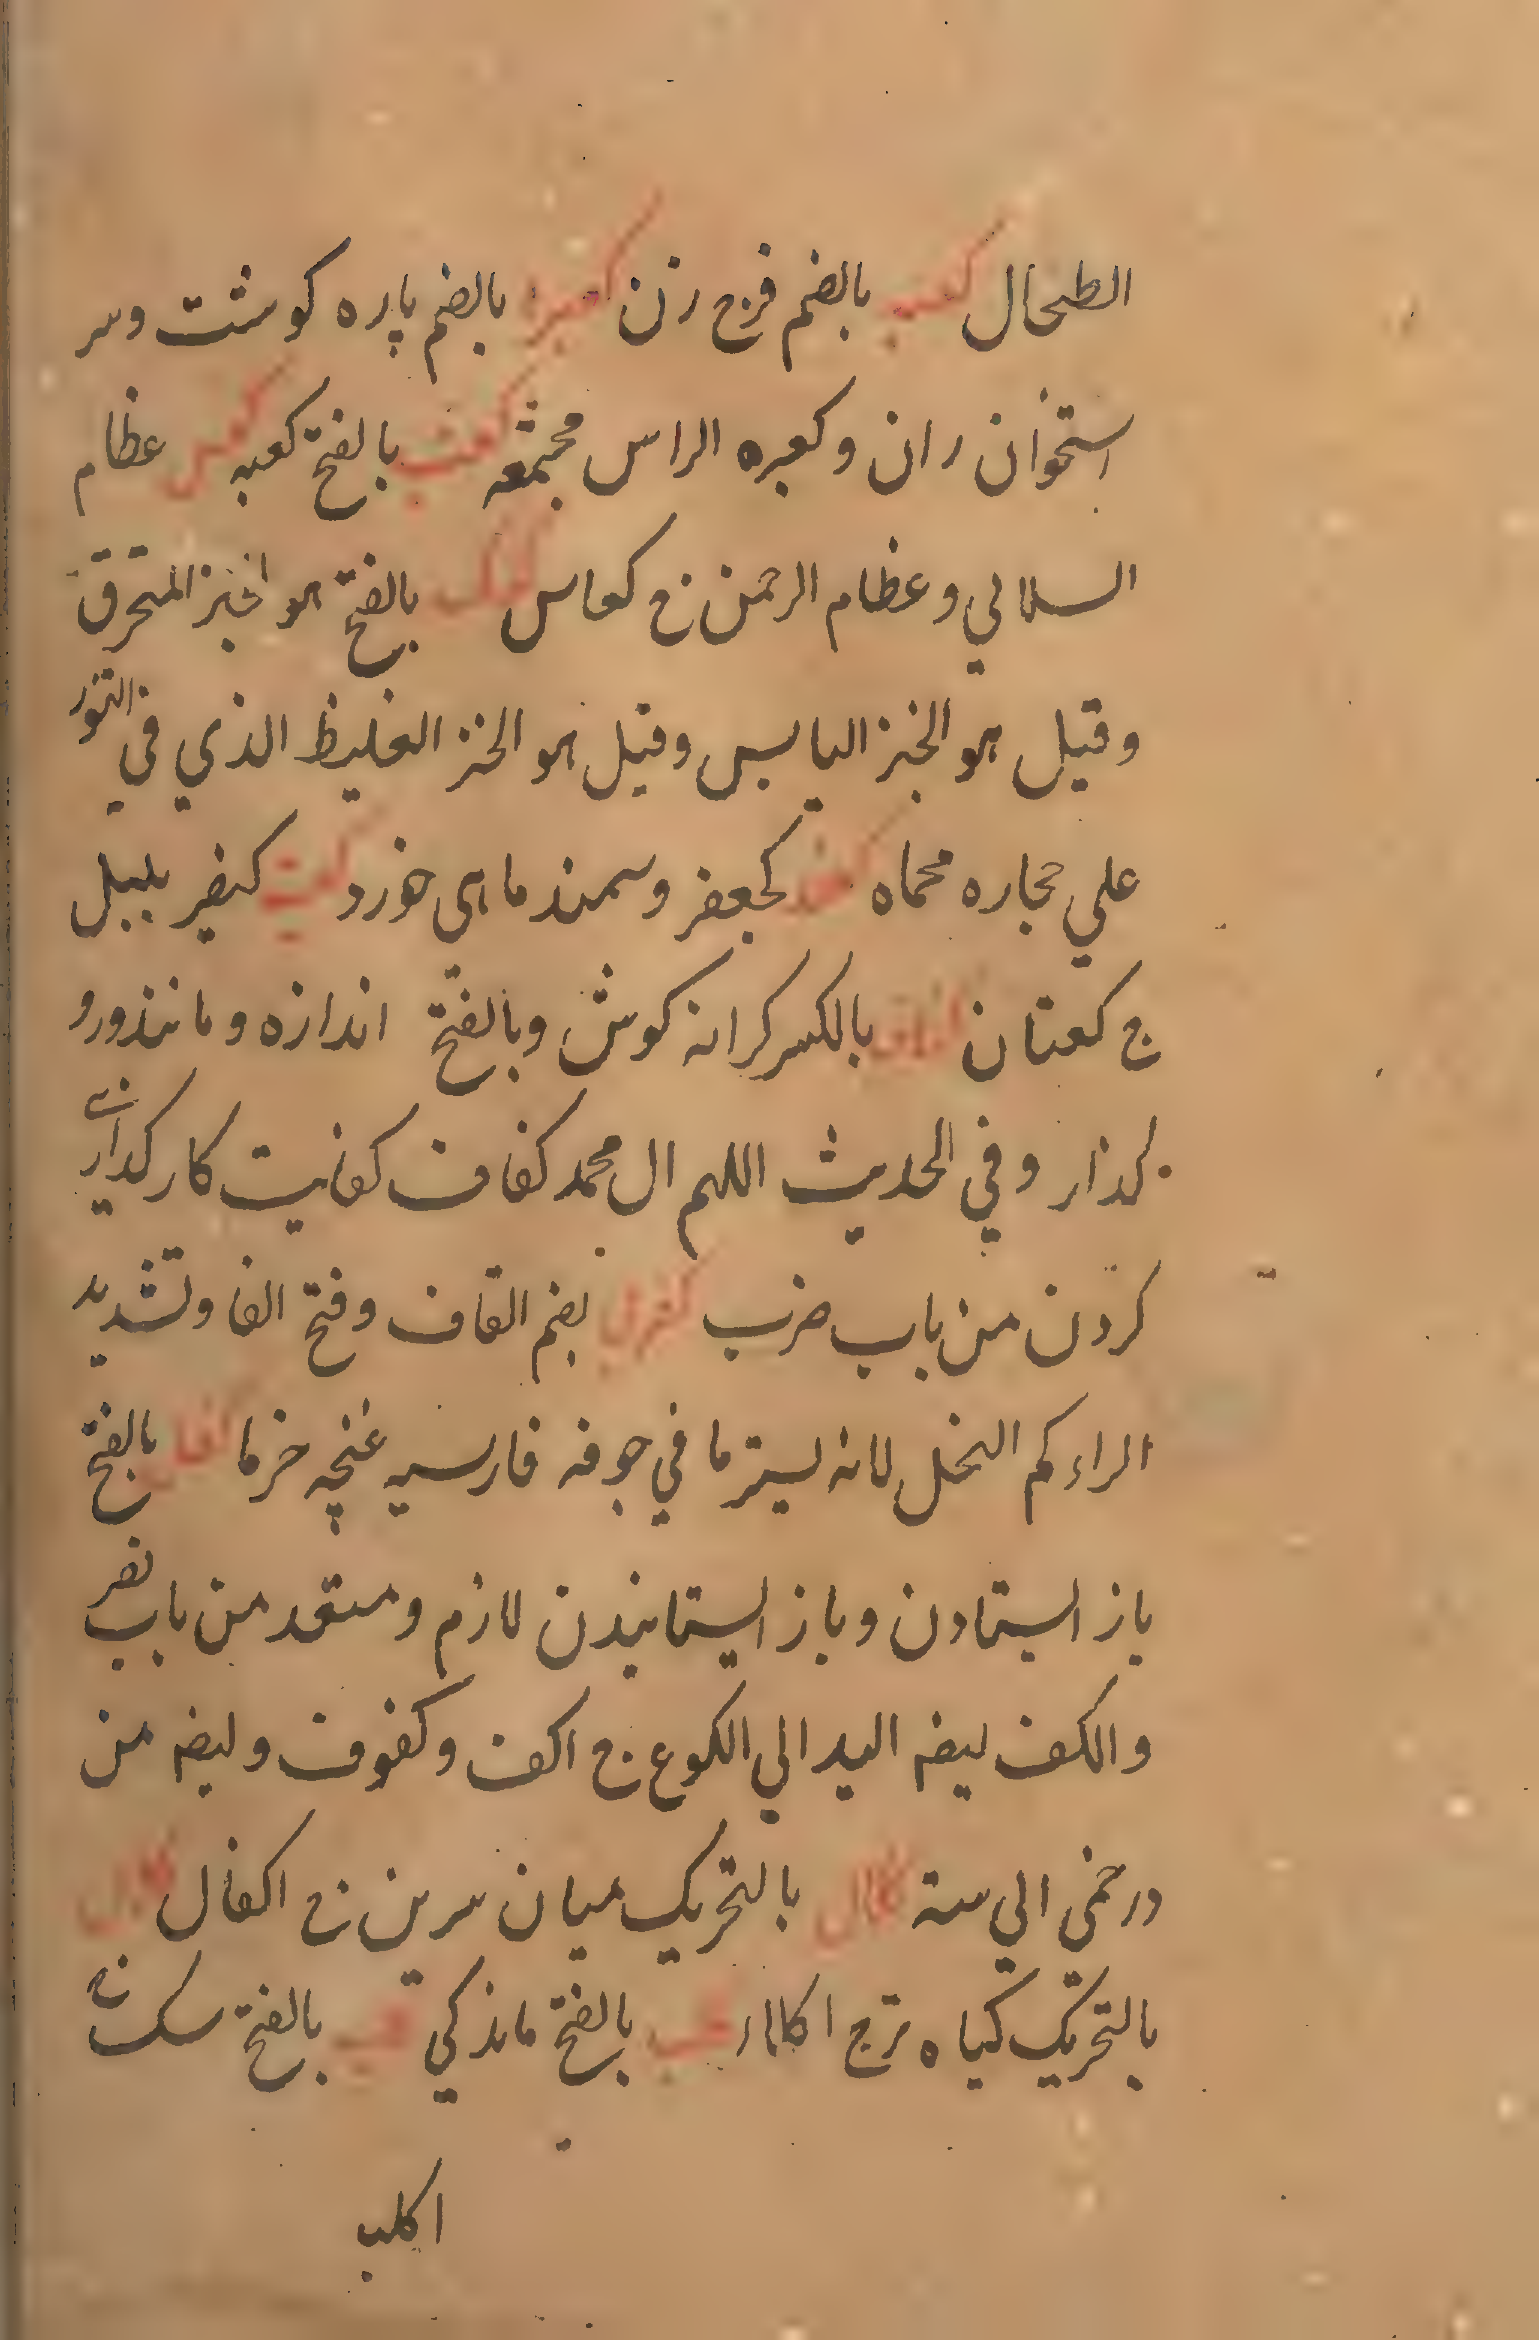 الطحال كعب بالضم فرج زن كعبره بالضم پاره كوشت وسر
استخوان ران وكعبره الراس مجتمعه كعب بالفتح كعبه كعس عظام
السلالي وعظام الرحمن ج كعاس كعك بالفتح هو الخبز المتحرق
وقيل هو الخبز اليابس وقيل هو الخبز الغليظ الذي في التنور
علي حجاره محماه كجعفر وسمند ماهى خورد كعيت كنفير بلبل
ج كعتان كفاف بالكسر كرانه كوش وبالفتح اندازه ومانندورو
كذار وفي الحديث اللهم ال محمد كفاف كفايت كاركذارى
كردن من باب ضرب كفرى بضم القاف وفتح الفا وتشديد
الراء كم النخل لانه ليستر ما في جوفه فارسيه غنچه خرما كف بالفتح
باز ايستادن وباز ايستانيدن لازم ومتعد من باب نصر
والكف ليضه اليد الي الكوع ج اكف وكفوف وليضه من
درخمى الي سته كفل بالتحريك ميان سرين ج اكفال كلا
بالتحريك كياه ترج اكلاار كلب بالفتح مانذكي كلب بالفتح سك ج
اكلب